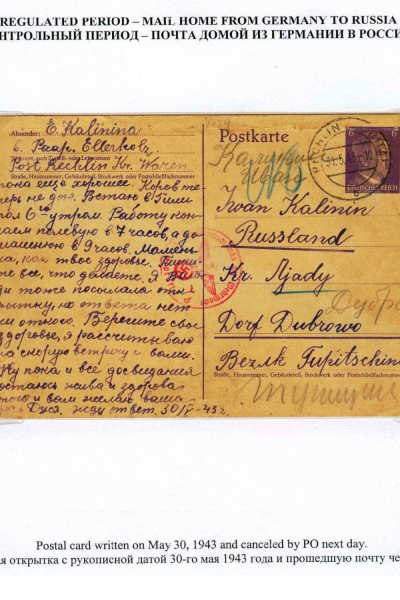 REGULATED PERIOD – MAIL HOME FROM GERMANY TO RUSSIA
НТРОЛЬНЫЙ ПЕРИОД – ПОЧТА ДОМОЙ ИЗ ГЕРМАНИИ В РОССИ
Absender: E. Kalinina
b. Paap. Ellerholz
Post Rechlin Kr. Waren
Straße, Hausnummer, Gebäudeteil, Stockwerk oder Postschließfachnummer
пока еще хорошее. Коров те
перь не дою. Встаю в 5 или
пол 6 утром. Работу кон
чаем полевую в 7 часов, а до
машнюю в 9 часов. Мамень
ка, как твое здоровье. Пиши
те все, что делаете. Я Ва
де тоже посылала от
крытку, но ответа нет
ни откого. Берегите свое
здоровье, я рассчитываю
на скорую встречу с вами.
Ну пока и все досвидания
осталась жива и здорова
того и вам желаю ваша
Дуся. жду ответ. 30/V-43г.
Postkarte
Калинин
Иван
RECHLIN
31.5.43
6
6
DEUTSCHES REICH
Iwan Kalinin
Russland
Kr. Ljady
Дубр
Dorf Dubrowo
Bezirk Tupitschino
Straße, Hausnummer, Gebäudeteil, Stockwerk oder Postschließfachnummer
Postal card written on May 30, 1943 and canceled by PO next day.
ая открытка с рукописной датой 30-го мая 1943 года и прошедшую почту че